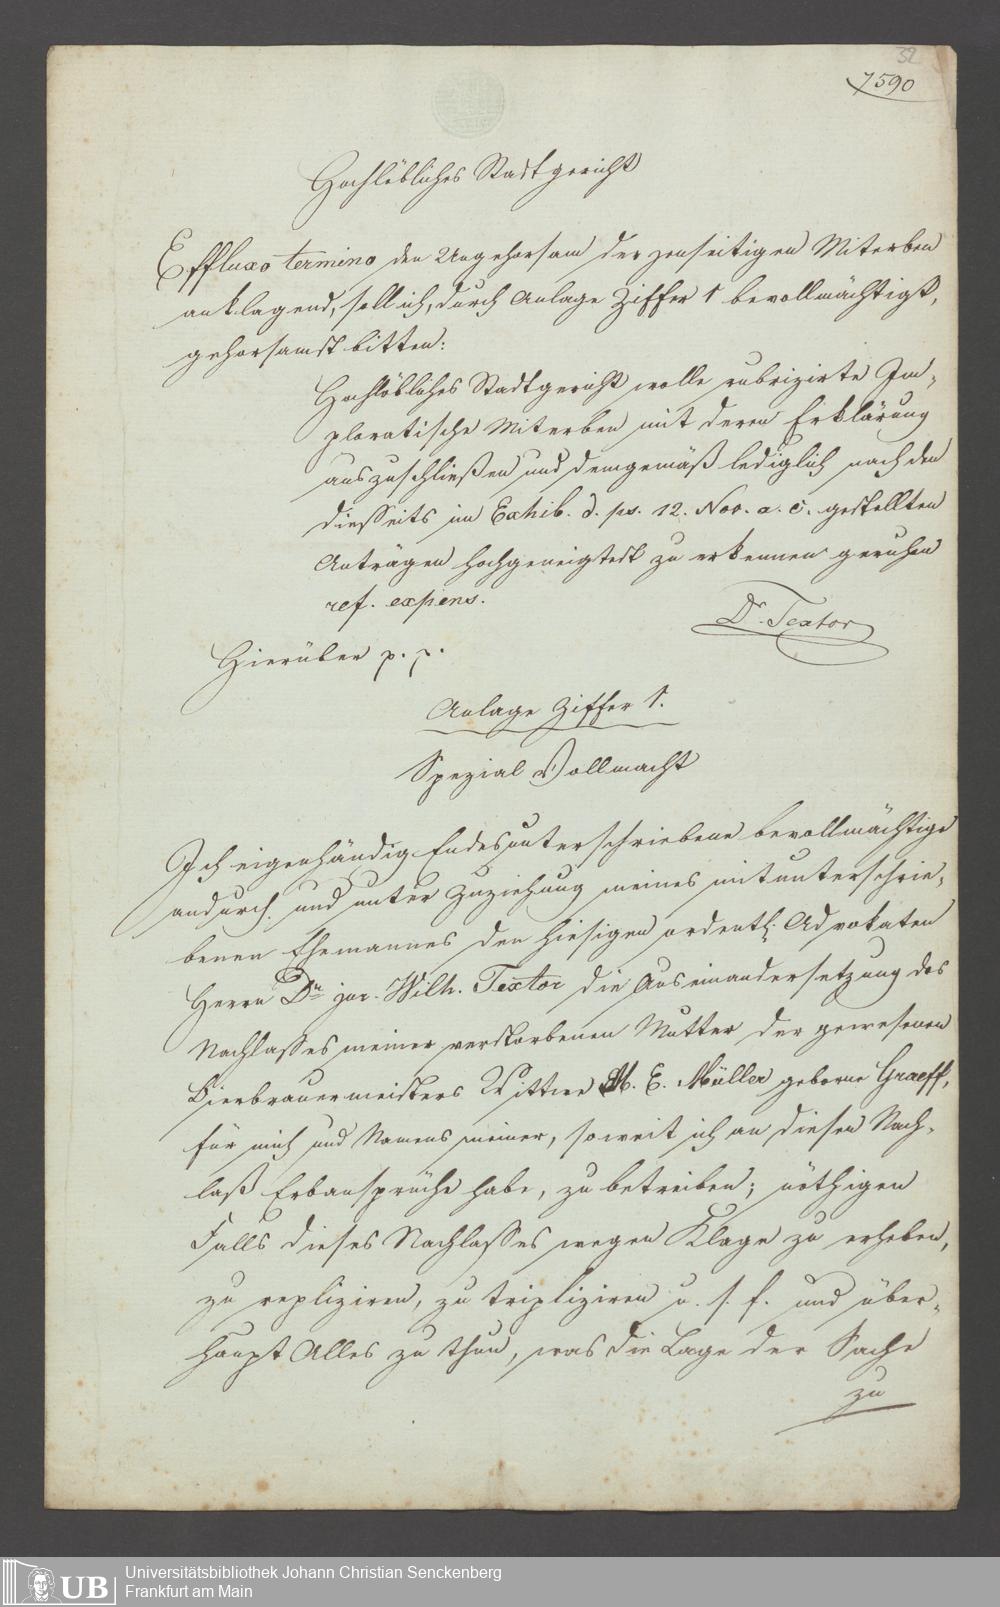 32
7590
Hochlöbliches Stadtgericht
Effluxo termino den Ungehorsam der jenseitigen Miterben
anklagend, soll ich, durch Anlage Ziffer 1 bevollmächtigt,
gehorsamst bitten:
Hochlöbliches Stadtgericht wolle rubrizirte Im-
ploratische Miterben mit deren Erklärung
auszuschließen und demgemäß lediglich nach den
diesseits im Exhib. d. ps. 12. Nov. a. c. gestellten
Anträgen hochgeneigtest zu erkennen geruhen
ref. expens.
Dr. Textor
Hierüber p. p.
Anlage Ziffer 1.
Spezial Vollmacht
Ich eigenhändig Endesunterschriebene bevollmächtige
andurch und unter Zuziehung meines mitunterschrie-
benen Ehemannes den hiesigen ordentl. Advokaten
Herrn Dr. jur. Wilh. Textor die Auseinandersetzung des
Nachlasses meiner verstorbenen Mutter der gewesenen
Bierbrauermeisters Wittwe M. E. Müller geborne Graeff,
für mich und Namens meiner, soweit ich an diesen Nach-
laß Erbansprüche habe, zu betreiben; nöthigen
Falls dieses Nachlasses wegen Klage zu erheben,
zu repliziren, zu tripliziren u. s. f. und über-
haupt Alles zu thun, was die Lage der Sache
zu
UB
Universitätsbibliothek Johann Christian Senckenberg
Frankfurt am Main